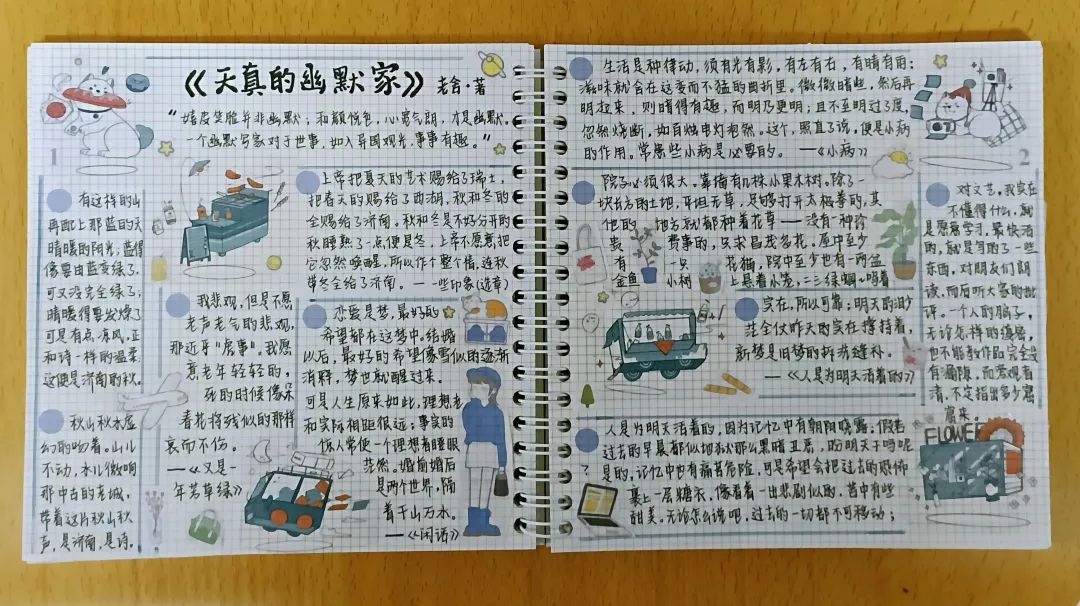 《天真的幽默家》 老舍·著
"嬉皮笑脸并非幽默；和颜悦色，心宽气朗，才是幽默。
一个幽默写家对于世事，如入异国观光，事事有趣。"
1
有这样的山
再配上那蓝的天
晴暖的阳光；蓝得
像要由蓝变绿了，
可又没完全绿了；
晴暖得要发燥了
可是有点凉风，正
和诗一样的温柔
这便是济南的秋。
秋山秋水虚
幻的吻着。山儿
不动，水儿微响
那中古的老城，
带着这片秋山秋
声，是济南，是诗。
上帝把夏天的艺术赐给了瑞士，
把春天的赐给了西湖，秋和冬的
全赐给了济南。秋和冬是不好分开的
秋睡熟了一点便是冬，上帝不愿意把
它忽然唤醒，所以作个整人情，连秋
带冬全给了济南。 —一些印象(选章)
我悲观，但是不愿
老声老气的悲观，
那近乎"虎事"。我愿
意老年轻轻的，
死的时候像朵
春花将残似的那样
哀而不伤。
—《又是一
年芳草绿》
恋爱是梦，最好的
希望都在这梦中。结婚
以后，最好的希望像雪似的逐渐
消释，梦也就醒过来。
可是人生原来如此，理想老
和实际相距很远；事实的
惊人常使一个理想者瞪眼
茫然。婚前婚后
是两个世界，隔
着千山万水。
—《闲话》
生活是种律动，须有光有影，有左有右，有晴有雨；
滋味就含在这变而不猛的曲折里。微微暗些，然后再
明起来，则暗得有趣，而明乃更明；且不至明过了度，
忽然烧断，如自烛电灯泡然。这个，照直了说，便是小病
的作用。常患些小病是必要的。 —《小病》
2
院子必须很大。靠墙有几株小果木树。除了一
块长方的土地，平坦无草，足够打开太极拳的，其
他的地方就都种着花草——没有一种珍
贵费事的，只求昌茂多花。屋中至少
有一只花猫，院中至少也有一两盆
金鱼 小树上悬着小笼，二三绿蝈蝈鸣着
实在，所以可靠；明天的
全仗昨天的实在撑持着，
新梦是旧梦的拆洗缝补。
—《人是为明天活着的》
人是为明天活着的，因为记忆中有朝阳晓露；假若
过去的早晨都似地狱那么黑暗丑恶，盼明天干吗呢
？是的，记忆中也有痛苦危险，可是希望会把过去的恐怖
裹上一层糖衣，像看着一出悲剧似的，苦中有些
甜美。无论怎么说吧，过去的一切都不可移动；
对文艺，我实在
不懂得什么，就
是愿意学习，最快活
的，就是写得了一些
东西，对朋友们朗
读，而后听大家的批
评。一个人的脑子，
无论怎样的缜密，
也不能教作品完全没
有漏隙，而旁观者
清，不定指出多少窟
窿来。
FLOWER